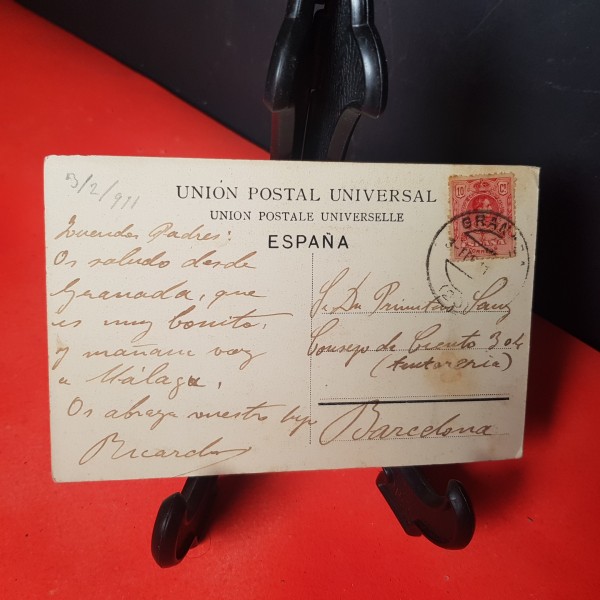 3/2/911
UNIÓN POSTAL UNIVERSAL
UNION POSTALE UNIVERSELLE
ESPAÑA
10 Cs
GRAN
Queridos Padres:
Os saludo desde
Granada, que
es muy bonito,
y mañana voy
a Málaga.
Os abraza vuestro hijo
Ricardo
S. Dn Primitivo Sanz
Consejo de Ciento 304
(Tintorería)
Barcelona